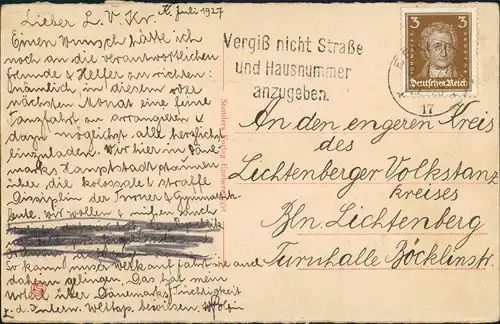 K. Juli 1927
Lieber L. V. Kr.
Einen Wunsch hätte ich
noch an die verantwortlichen
Freunde & Helfer zu richten:
nämlich, in diesem oder
nächsten Monat eine feine
Tanzfahrt zu arrangieren &
dazu möglichst alle herzlichst
einzuladen. Wir hier in Däne-
marks Hauptstadt staunen
über die kolossale & straffe
Disziplin der Turner & Gymnastik-
leute. Wir wollen & müssen
So kann unser Werk auf Fahrt wie auch
daheim gelingen. Das hat mein
Urteil über Dänemarks Tüchtigkeit
z. d. Intern. bewiesen.
Vergiß nicht Straße
und Hausnummer
anzugeben.
3 3
Deutsches Reich
17
An den engeren Kreis
des
Lichtenberger Volkstanz
kreises
Bln. Lichtenberg
Turnhalle Böcklinstr.